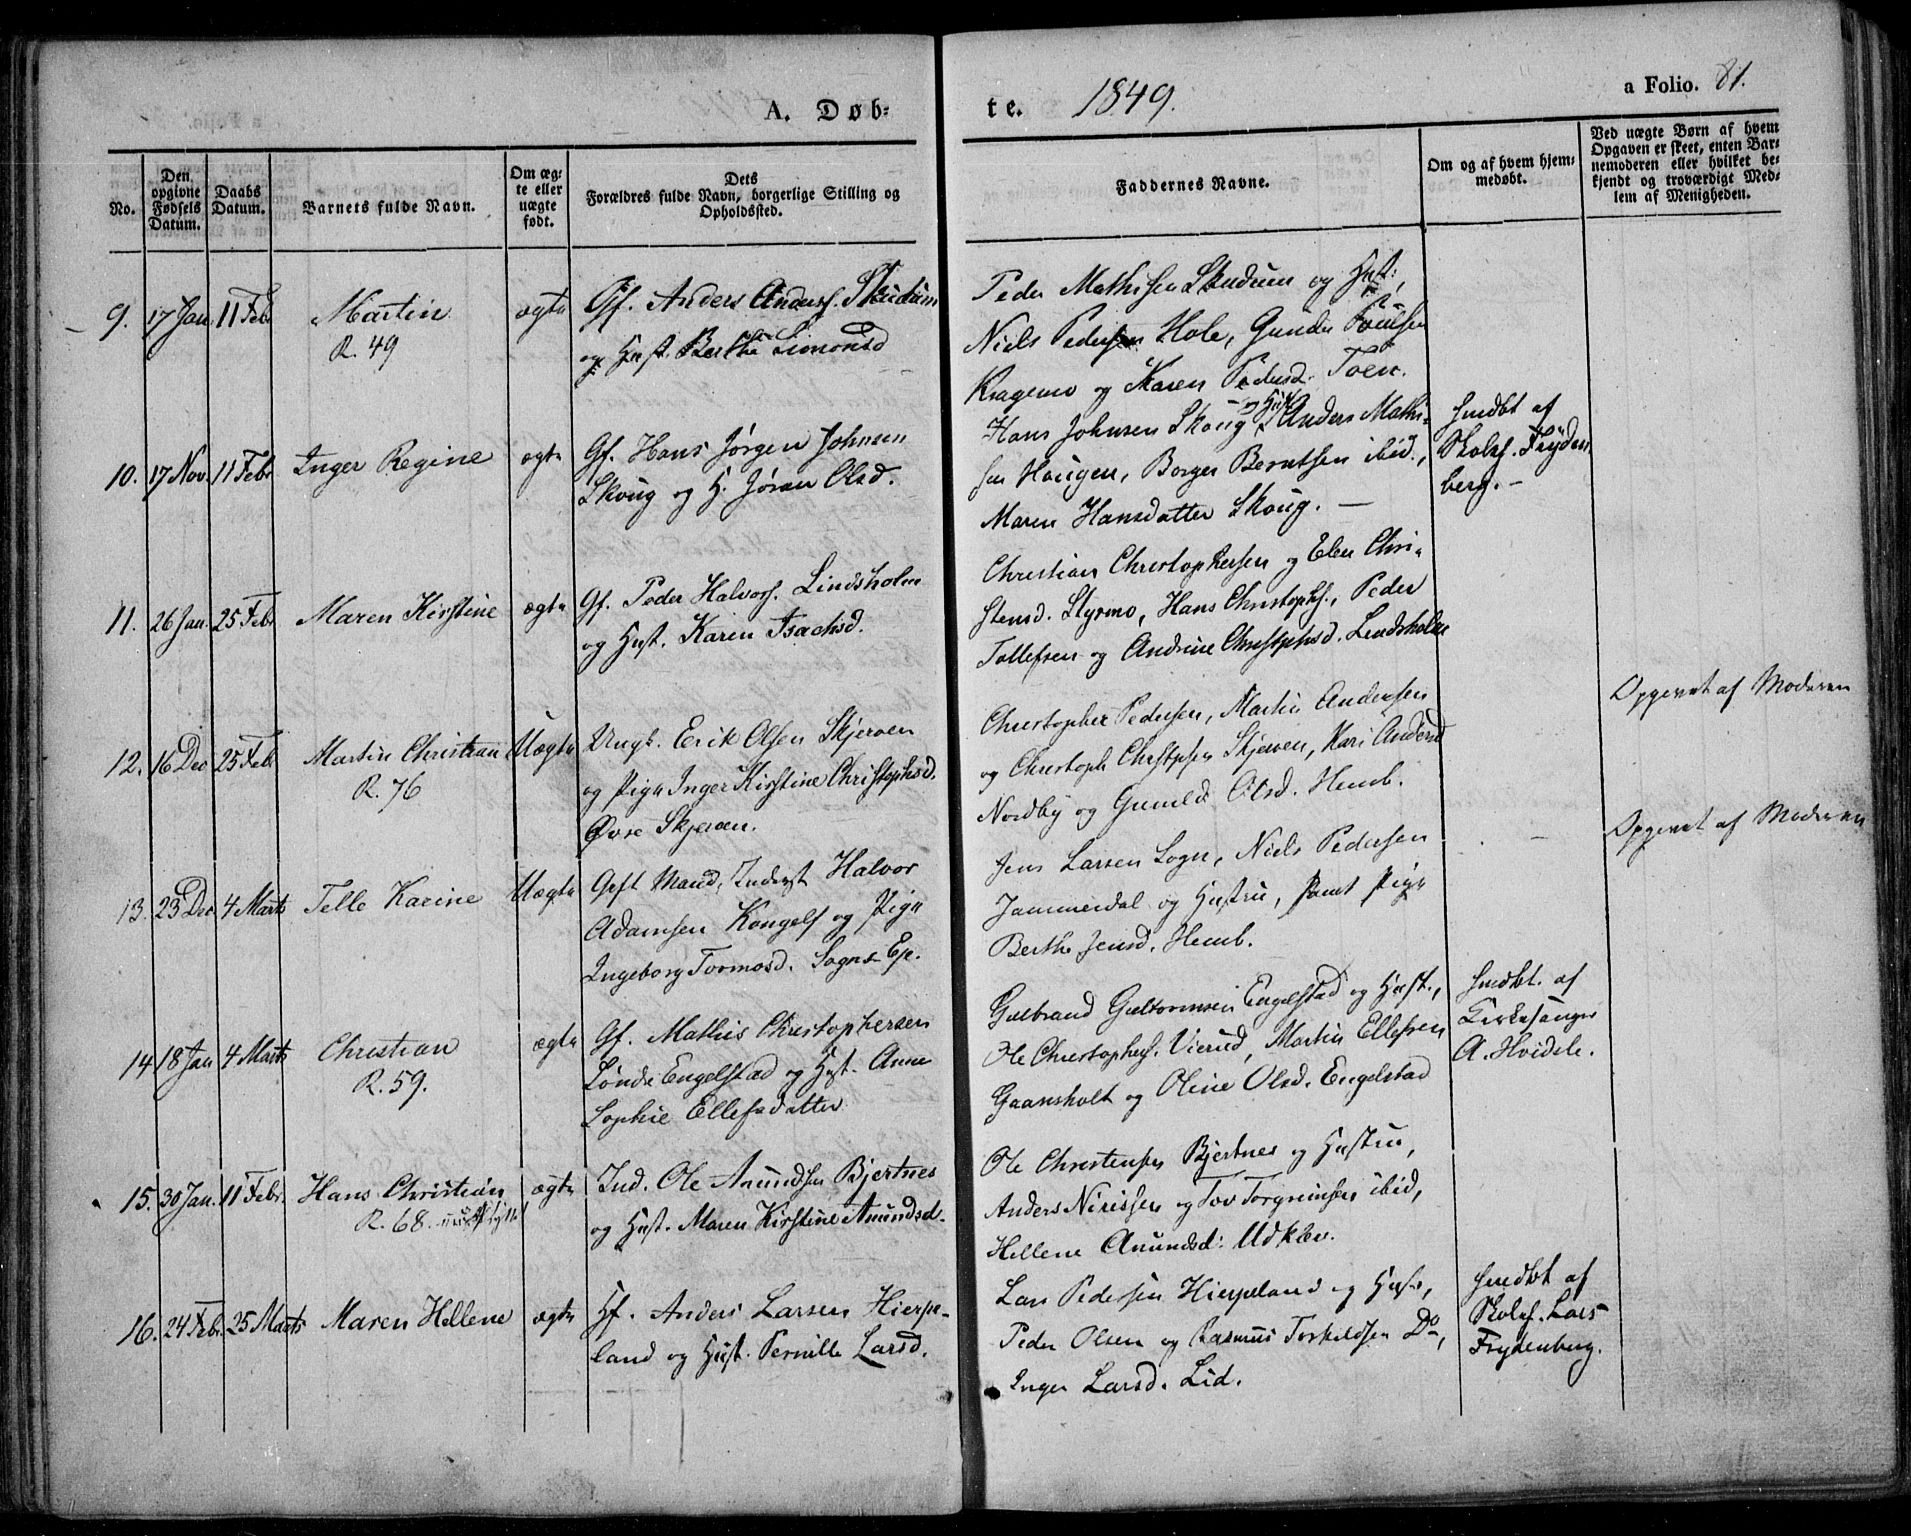 A. Døb-
te. 1849.
a Folio. 81.
No.
Den opgivne Fødsels Datum.
Daabs Datum.
Barnets fulde Navn.
Om ægte eller uægte født.
Dets
Forældres fulde Navn, borgerlige Stilling og
Opholdssted.
Faddernes Navne.
Om og af hvem hjem-
medøbt.
Ved uægte Børn af hvem
Opgaven er skeet, enten Bar-
nemoderen eller hvilket be-
kjendt og troværdigt Med-
lem af Menigheden.
9. 17 Jan 11 Febr Martin ægte Gf. Anders Anders. Skudum
R. 49
og Hust. Berthe Simonsd
Peder Mathisen Skudum og Hust.,
Niels Pedersen Hole, Gunder Poulsen
Kragemo og Karen Pedersd. Toen.
10. 17 Nov. 11 Febr Inger Regine ægte Gf. Hans Jørgen Johnsen
Skoug og H. Jøran Olsd.
Hans Johnsen Skoug og Hust, Anders Mathi-
sen Hougen, Borger Berntsen ibid.,
Maren Hansdatter Skoug. —
hmdbt af
Skolef. Fryden
berg. —
11. 26 Jan. 25 Febr Maren Kirstine ægte Gf. Peder Halvors. Lindsholm
og Hust. Karen Isachsd.
Christian Christophersen og Elen Chri-
stensd. Styrmo, Hans Christophs., Peder
Tollefsen og Andrine Christophsd. Lindsholm
12. 16 Dec 25 Febr Martin Christian Uægte Ungk. Erik Olsen Skjerven
R. 76
og Pige Inger Kirstine Christophsd.
Øvre Skjerven.
Christopher Pedersen, Martin Andersen
og Christoph Christophsen Skjerven, Kari Andersd
Nordby og Gunild Olsd. Hemb.
Opgivet af Moderen
13. 23 Dec 4 Marts Telle Karine Uægte Gift Mand, Inderst Halvor
Adamsen Kongelf og Pige
Ingeborg Tormosd. Sogns Ej.
Jens Larsen Sogn, Niels Pedersen
Jammerdal og Hustru, samt Pige
Berthe Jensd. Hemb.
Opgivet af Moderen
14 18 Jan 4 Marts Christian ægte Gf. Mathis Christophersen
R. 59.
Søndr Engelstad og Hust. Anne
Sophie Ellefsdatter
Gulbrand Guttormsen Engelstad og Hust.,
Ole Christophers. Vierud, Martin Ellefsen
Gaansholt og Oline Olsd. Engelstad
hmdbt. af
Kirkesanger
A. Hvidele.
15. 30 Jan. 11 Febr. Hans Christian ægte Ind. Ole Amundsen Bjertnes
R. 68.
og Hust. Maren Kirstine Amundsd.
Ole Christensen Bjertnes og Hustru,
Anders Nirissen og Tov Torgrimsen ibid,
Hellene Amundsd: Udklev.
16. 24 Febr. 25 Marts Maren Hellene ægte Hf. Anders Larsen Hierpe-
land og Hust. Pernille Larsd.
Lars Pedersen Hierpeland og Hust.,
Peder Olsen og Rasmus Torkildsen Do,
Inger Larsd. Lid.
hmdbt af
Skolef. Lars
Frydenberg.